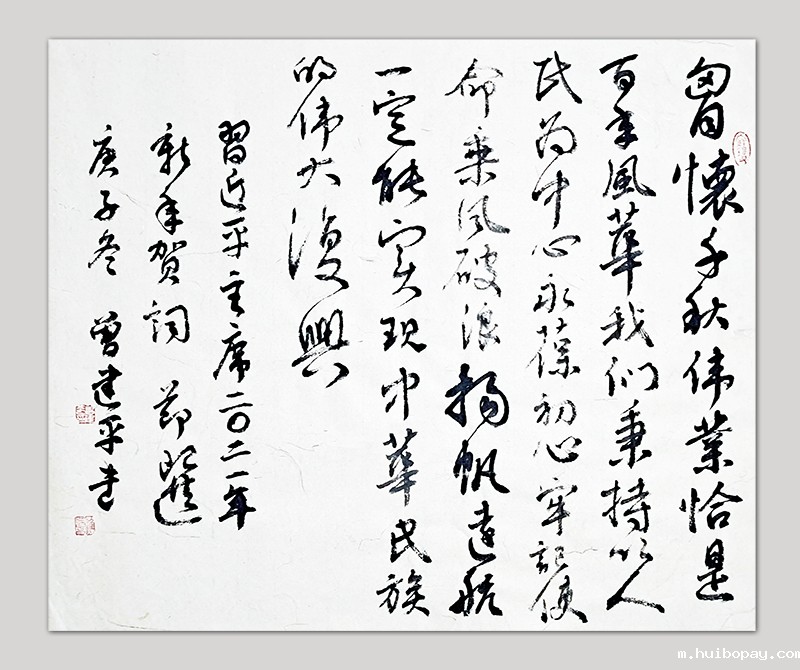 胷懷千秋伟業恰是
百年風華我们秉持以人
民为中心永葆初心牢記使
命乘风破浪揚帆遠航
一定能实现中華民族
的伟大復興
習近平主席二〇二一年
新年贺词節選
庚子冬 曾建平书
m.huibopay.com